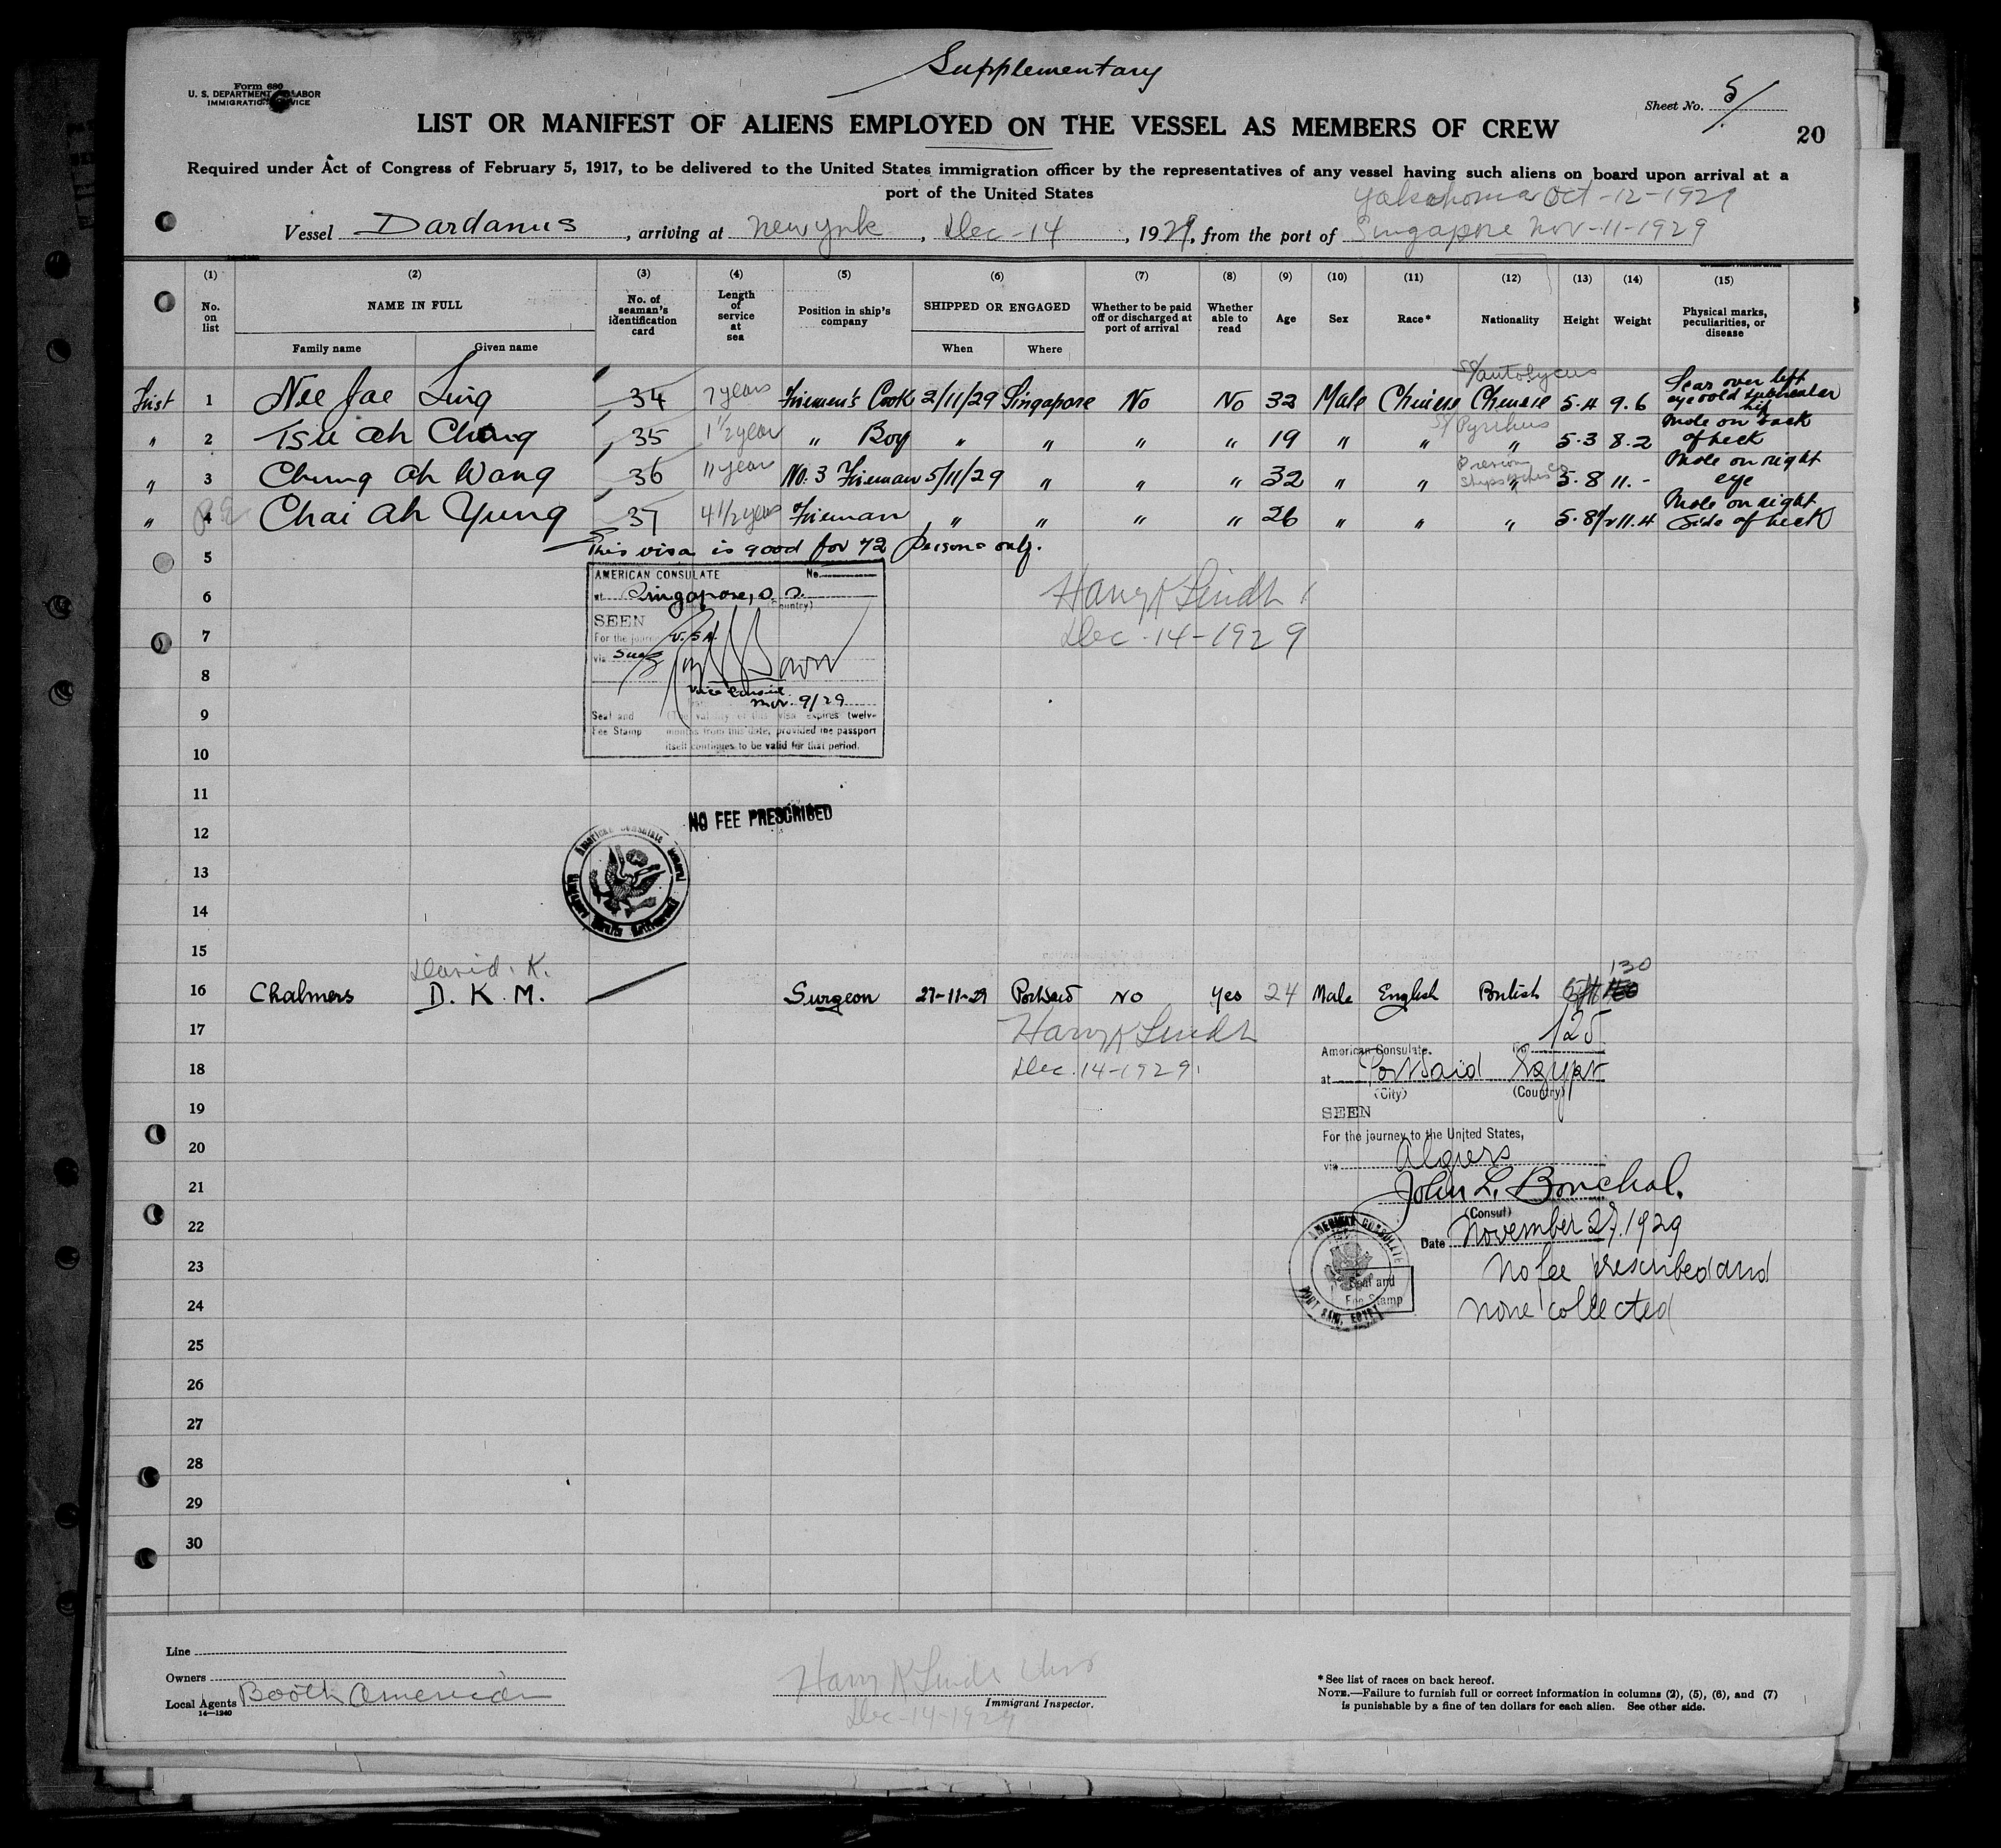 Supplementary
Form 680
U. S. DEPARTMENT LABOR
IMMIGRATION SERVICE
Sheet No. 5/
LIST OR MANIFEST OF ALIENS EMPLOYED ON THE VESSEL AS MEMBERS OF CREW
20
Required under Act of Congress of February 5, 1917, to be delivered to the United States immigration officer by the representatives of any vessel having such aliens on board upon arrival at a
port of the United States
Yokohoma Oct-12-1929
Vessel Dardanus, arriving at New York, Dec-14, 1929, from the port of Singapore Nov-11-1929
(1) (2) (3) (4) (5) (6) (7) (8) (9) (10) (11) (12) (13) (14) (15)
No. on list NAME IN FULL No. of seaman's identification card Length of service at sea Position in ship's company SHIPPED OR ENGAGED Whether to be paid off or discharged at port of arrival Whether able to read Age Sex Race* Nationality Height Weight Physical marks, peculiarities, or disease
Family name Given name When Where
S/Autolycus
First 1 Nee Jae Ling 34 7 years Firemen's Cook 2/11/29 Singapore No No 32 Male Chinese Chinese 5.4 9.6 Scar over left eye
S/Pyrrhus
" 2 Tsu Ah Chong 35 1½ year " Boy " " " " 19 " " " 5.3 8.2 Mole on back of neck
" 3 Chung Ah Wang 36 11 years No. 3 Fireman 5/11/29 " " " 32 " " " 5.8 11.- Mole on right eye
" 4 Chai Ah Yung 37 4½ years Fireman " " " " 26 " " " 5.8½ 11.4 Mole on right side of neck
5 This visa is good for 42 persons only.
AMERICAN CONSULATE No.
6 at Singapore, S. S. (Country)
Harry K Lindh
SEEN
7 For the journey U.S.A.
Dec-14-1929
via Suez
8
Vice Consul
9 Nov. 9/29
Seal and (The validity of this visa expires twelve
Fee Stamp months from this date, provided the passport
10 itself continues to be valid for that period.
11
NO FEE PRESCRIBED
12
American Consulate General
Singapore Straits Settlements
13
14
15
David. K. 130
16 Chalmers D. K. M. Surgeon 27-11-29 Portsaid No Yes 24 Male English British
17 Harry K Lindh
American Consulate. No. 125
18 Dec.14-1929
at Port Said Egypt
(City) (Country)
19 SEEN
For the journey to the United States,
20 via Algiers
21 John L. Bouchal.
(Consul)
22 Date November 27, 1929
AMERICAN CONSULATE
PORT SAID, EGYPT
23 No fee prescribed and
Seal and
Fee Stamp
24 none collected
25
26
27
28
29
30
Line
Owners
Local Agents Booth American
14—1240
Harry K Lindh
Immigrant Inspector.
Dec-14-1929
*See list of races on back hereof.
NOTE.—Failure to furnish full or correct information in columns (2), (5), (6), and (7)
is punishable by a fine of ten dollars for each alien. See other side.